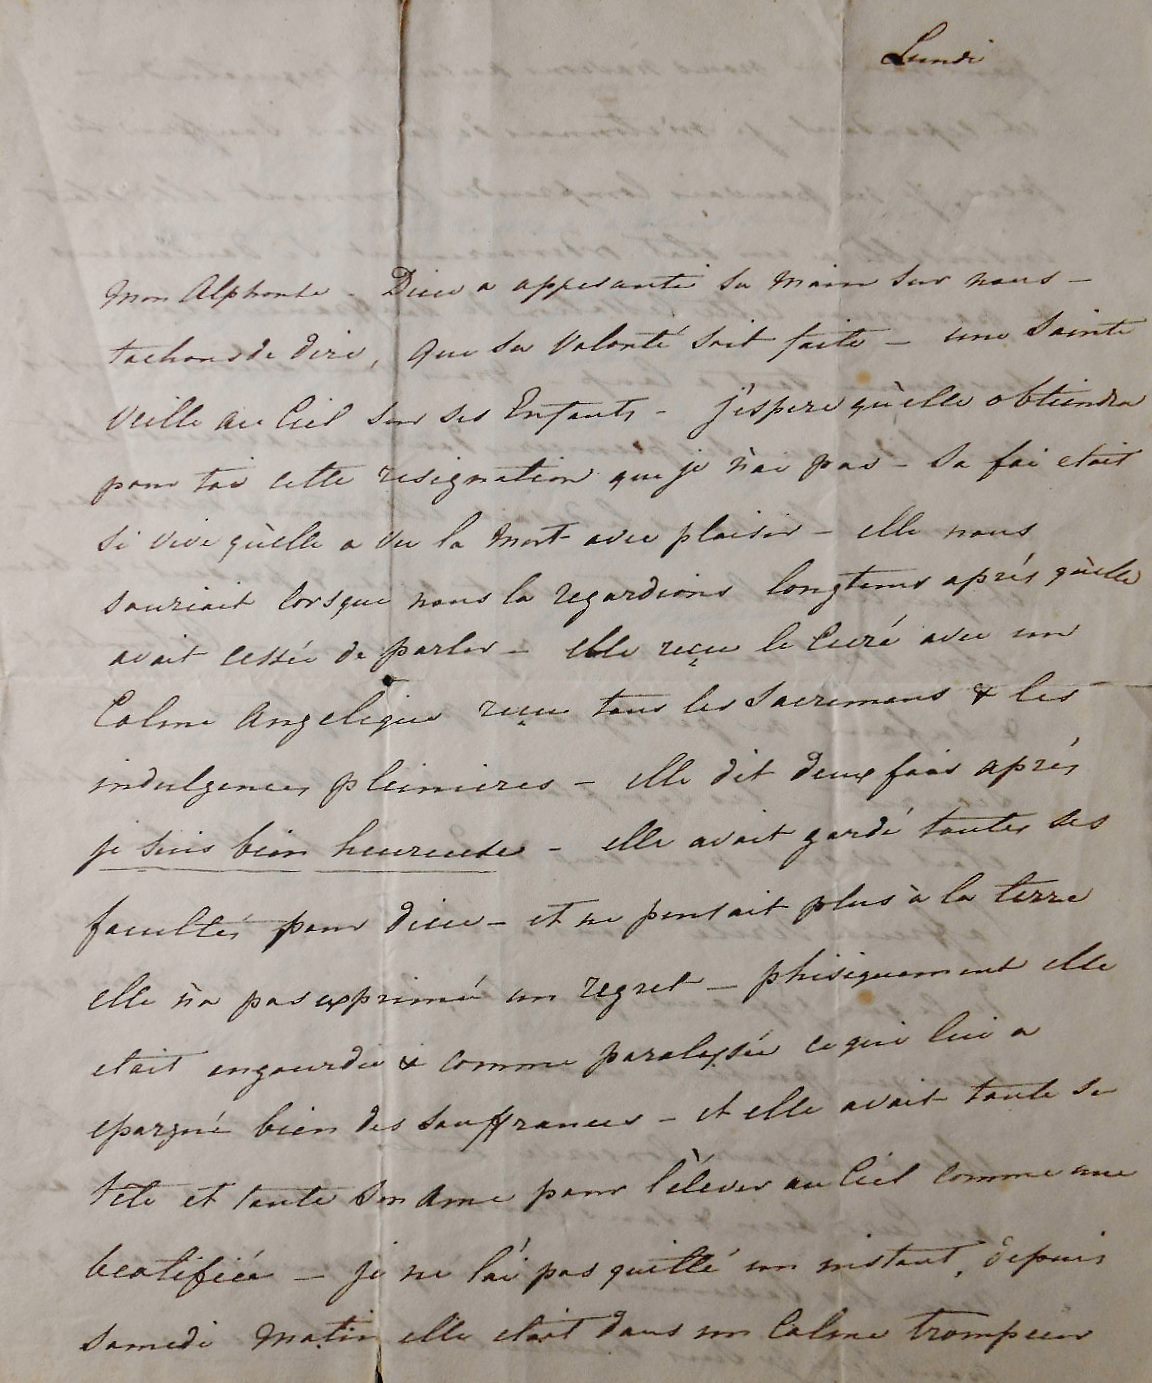 Lundi
Mon Alphonse - Dieu a appesanti sa main sur nous -
tachons de dire, que sa volonté soit faite - une Sainte
veille au Ciel sur ses Enfants - j'espere qu'elle obtiendra
pour toi cette resignation que je n'ai pas - sa foi etait
si vive qu'elle a vu la mort avec plaisir - elle nous
souriait lorsque nous la regardions longtems aprés qu'elle
avait cessée de parler - elle reçu le Curé avec un
Calme Angelique reçu tous les Sacremens & les
indulgences pleinieres - elle dit deux fois aprés
je suis bien heureuse - elle avait gardé toutes ses
facultés pour dieu - et ne pensait plus à la terre
elle n'a pas exprimé un regret - phisiquement elle
etait engourdie & comme paralysée ce qui lui a
epargné bien des souffrances - et elle avait toute sa
tête et toute son ame pour s'élever au Ciel comme une
beatifiée - je ne l'ai pas quitté un instant, depuis
samedi Matin elle etait dans un Calme trompeur